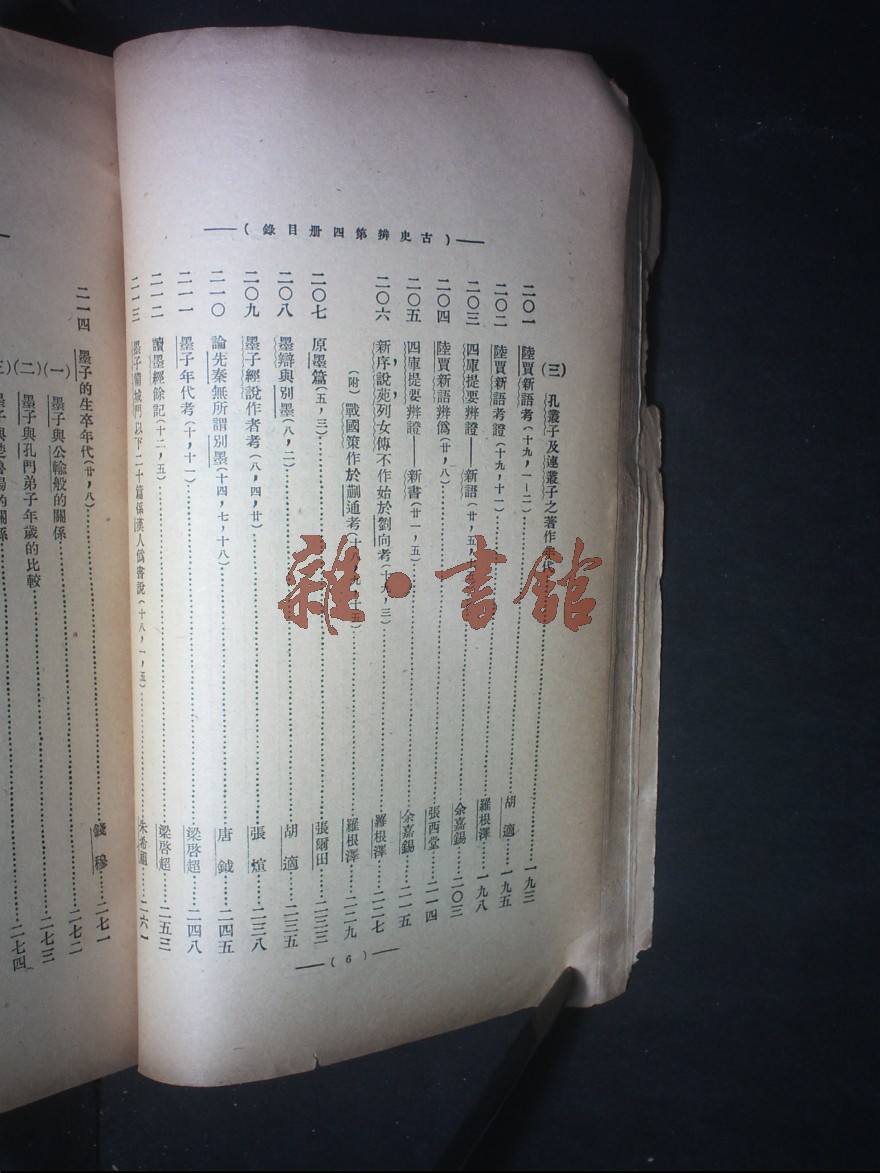 (古史辨第四册目錄)
(三) 孔叢子及連叢子之著作年代……一九三
二〇一 陸賈新語考(十九,一——二)……胡適……一九五
二〇二 陸賈新語考證(十九,十一)……羅根澤……一九八
二〇三 四庫提要辨證——新語(廿,五,……余嘉錫……二〇三
二〇四 陸賈新語辨僞(廿,八)……張西堂……二一四
二〇五 四庫提要辨證——新書(廿一,五)……余嘉錫……二一五
二〇六 新序,說苑,列女傳不作始於劉向考(十九,三)……羅根澤……二二七
(附) 戰國策作於蒯通考……羅根澤……二二九
二〇七 原墨篇(五,三)……張爾田……二三三
二〇八 墨辯與別墨(八,二)……胡適……二三五
二〇九 墨子經說作者考(八,四,廿)……張煊……二三八
二一〇 論先秦無所謂別墨(十四,七,十八)……唐鉞……二四五
二一一 墨子年代考(十,十一)……梁啓超……二四八
二一二 讀墨經餘記(十二,五)……梁啓超……二五三
二一三 墨子備城門以下二十篇係漢人僞書說(十八,一,五)……朱希祖……二六一
(6)
二一四 墨子的生卒年代(廿,八)……錢穆……二七一
(一) 墨子與公輸般的關係……二七二
(二) 墨子與孔門弟子年歲的比較……二七三
(三) 墨子與楚魯陽的關係……二七四
雜·書館